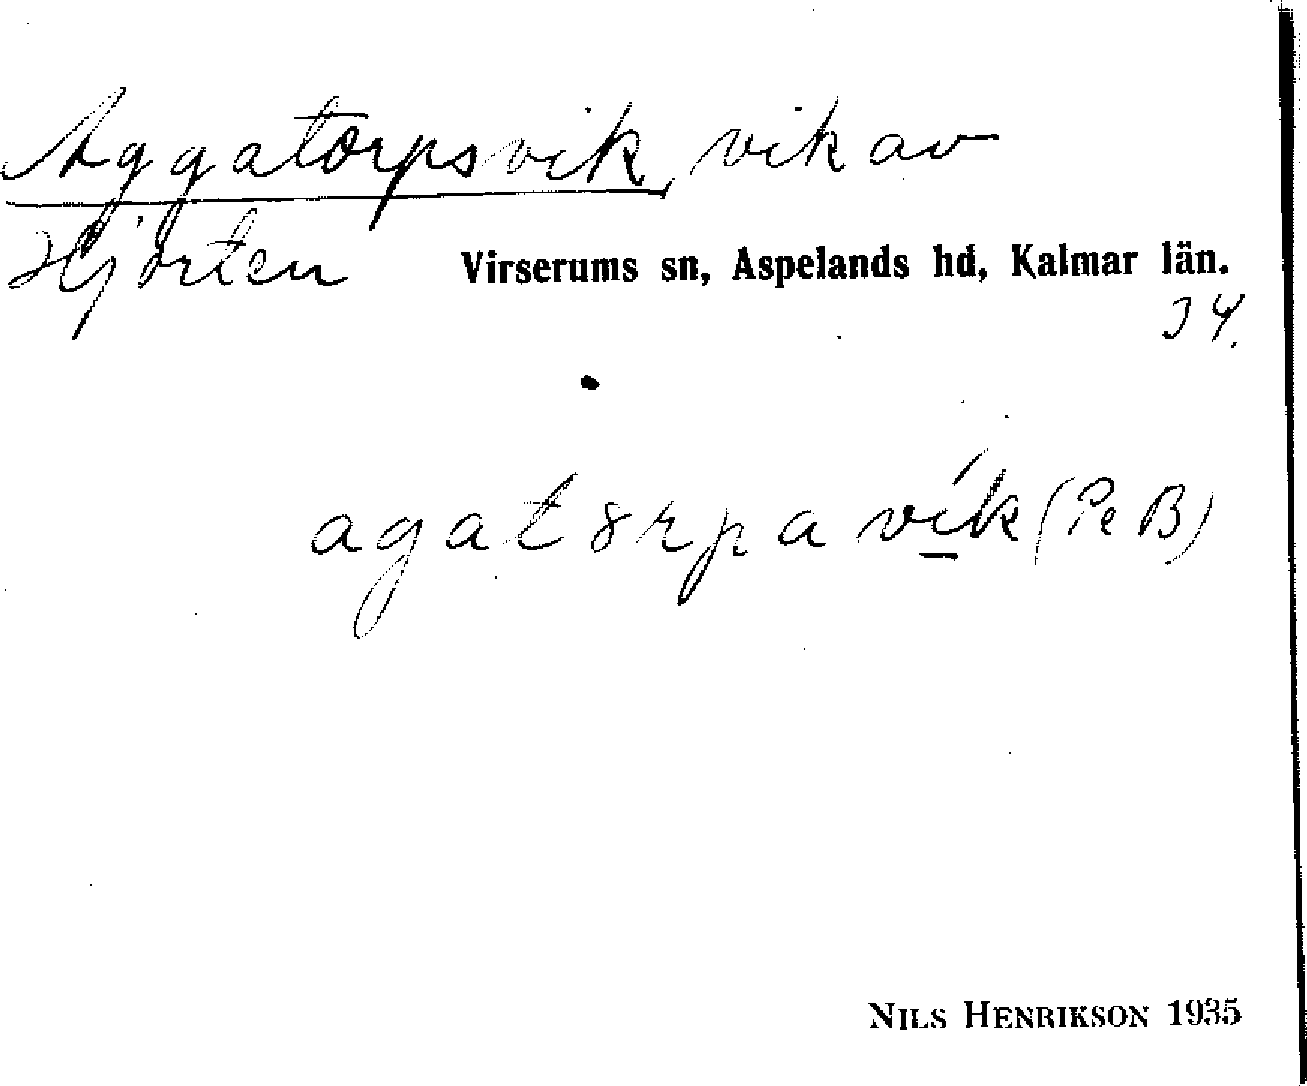 Aggatorpsvik, vik av
Hjorten Virserums sn, Aspelands hd, Kalmar län.
34.
agat8rpa vík (Pe B)
NILS HENRIKSON 1935